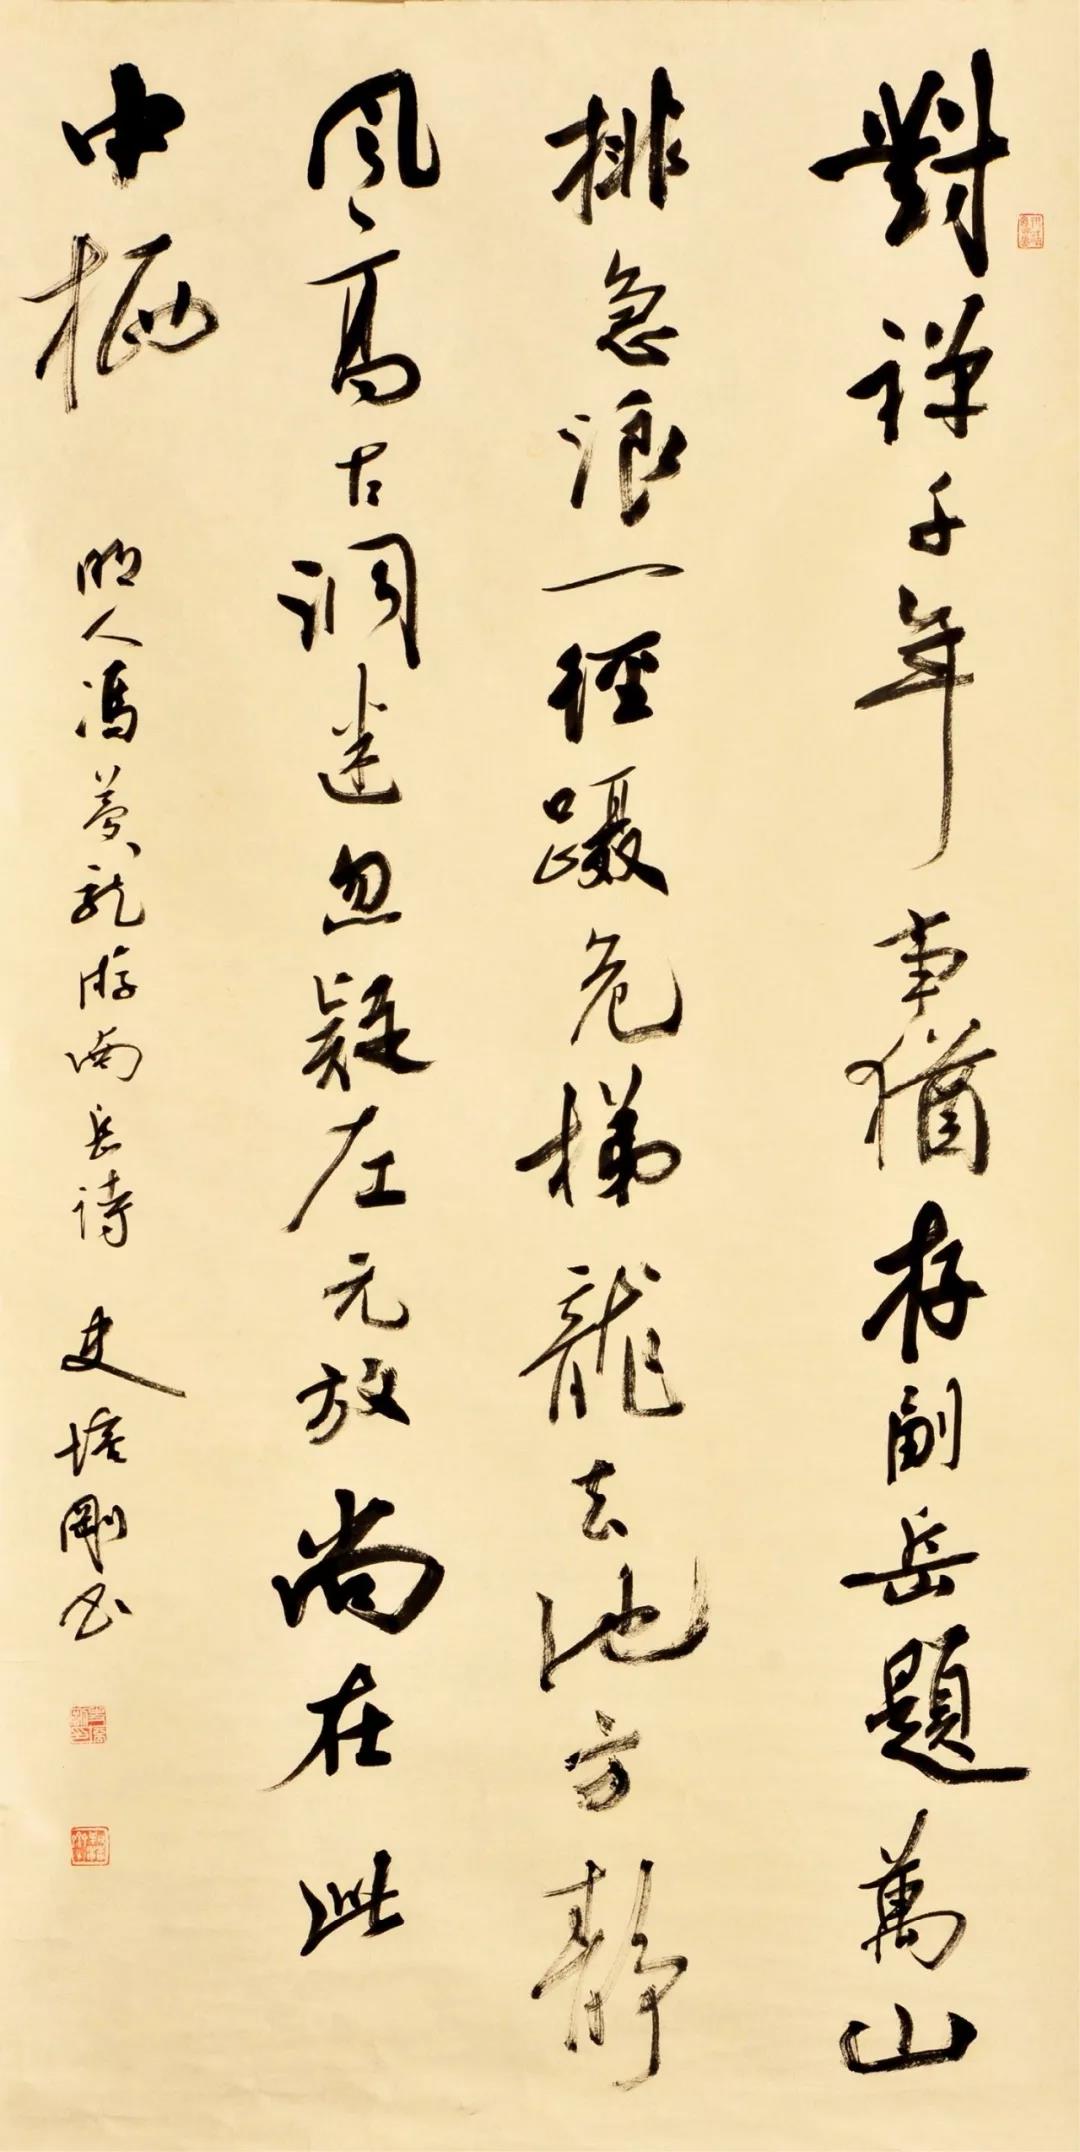 對禅千年事猶存副岳題萬山
排急浪一徑蹑危梯龍去池方靜
风高古洞迷忽疑左元放尚在此
中栖
明人馮夢龍游南岳詩 史培剛书